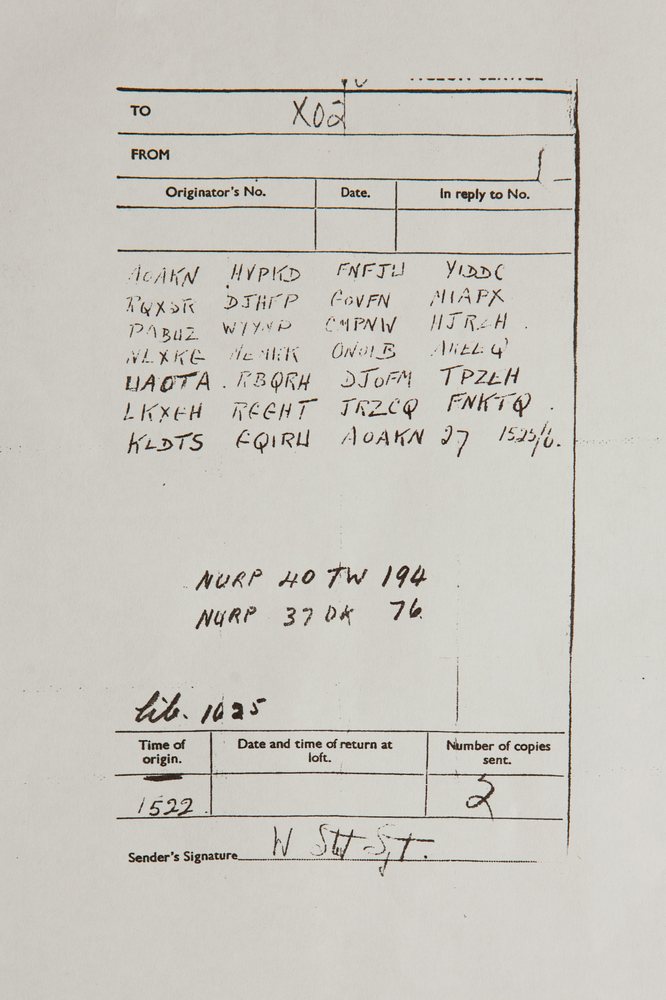 TO X02
FROM 1
Originator's No. Date. In reply to No.
AOAKN HVPKD FNFJU YIDDC
RQXSR DJHFP GOVFN MIAPX
PABUZ WYYNP CMPNW HJRZH
NLXKG MEMKK ONOIB AKEEQ
UAOTA RBQRH DJOFM TPZEH
LKXGH RGGHT JRZCQ FNKTQ
KLDTS GQIRU AOAKN 27 1525/6.
NURP 40 TW 194
NURP 37 DK 76
lib. 1625
Time of origin. Date and time of return at loft. Number of copies sent.
1522 2
Sender's Signature W Stt Sjt.